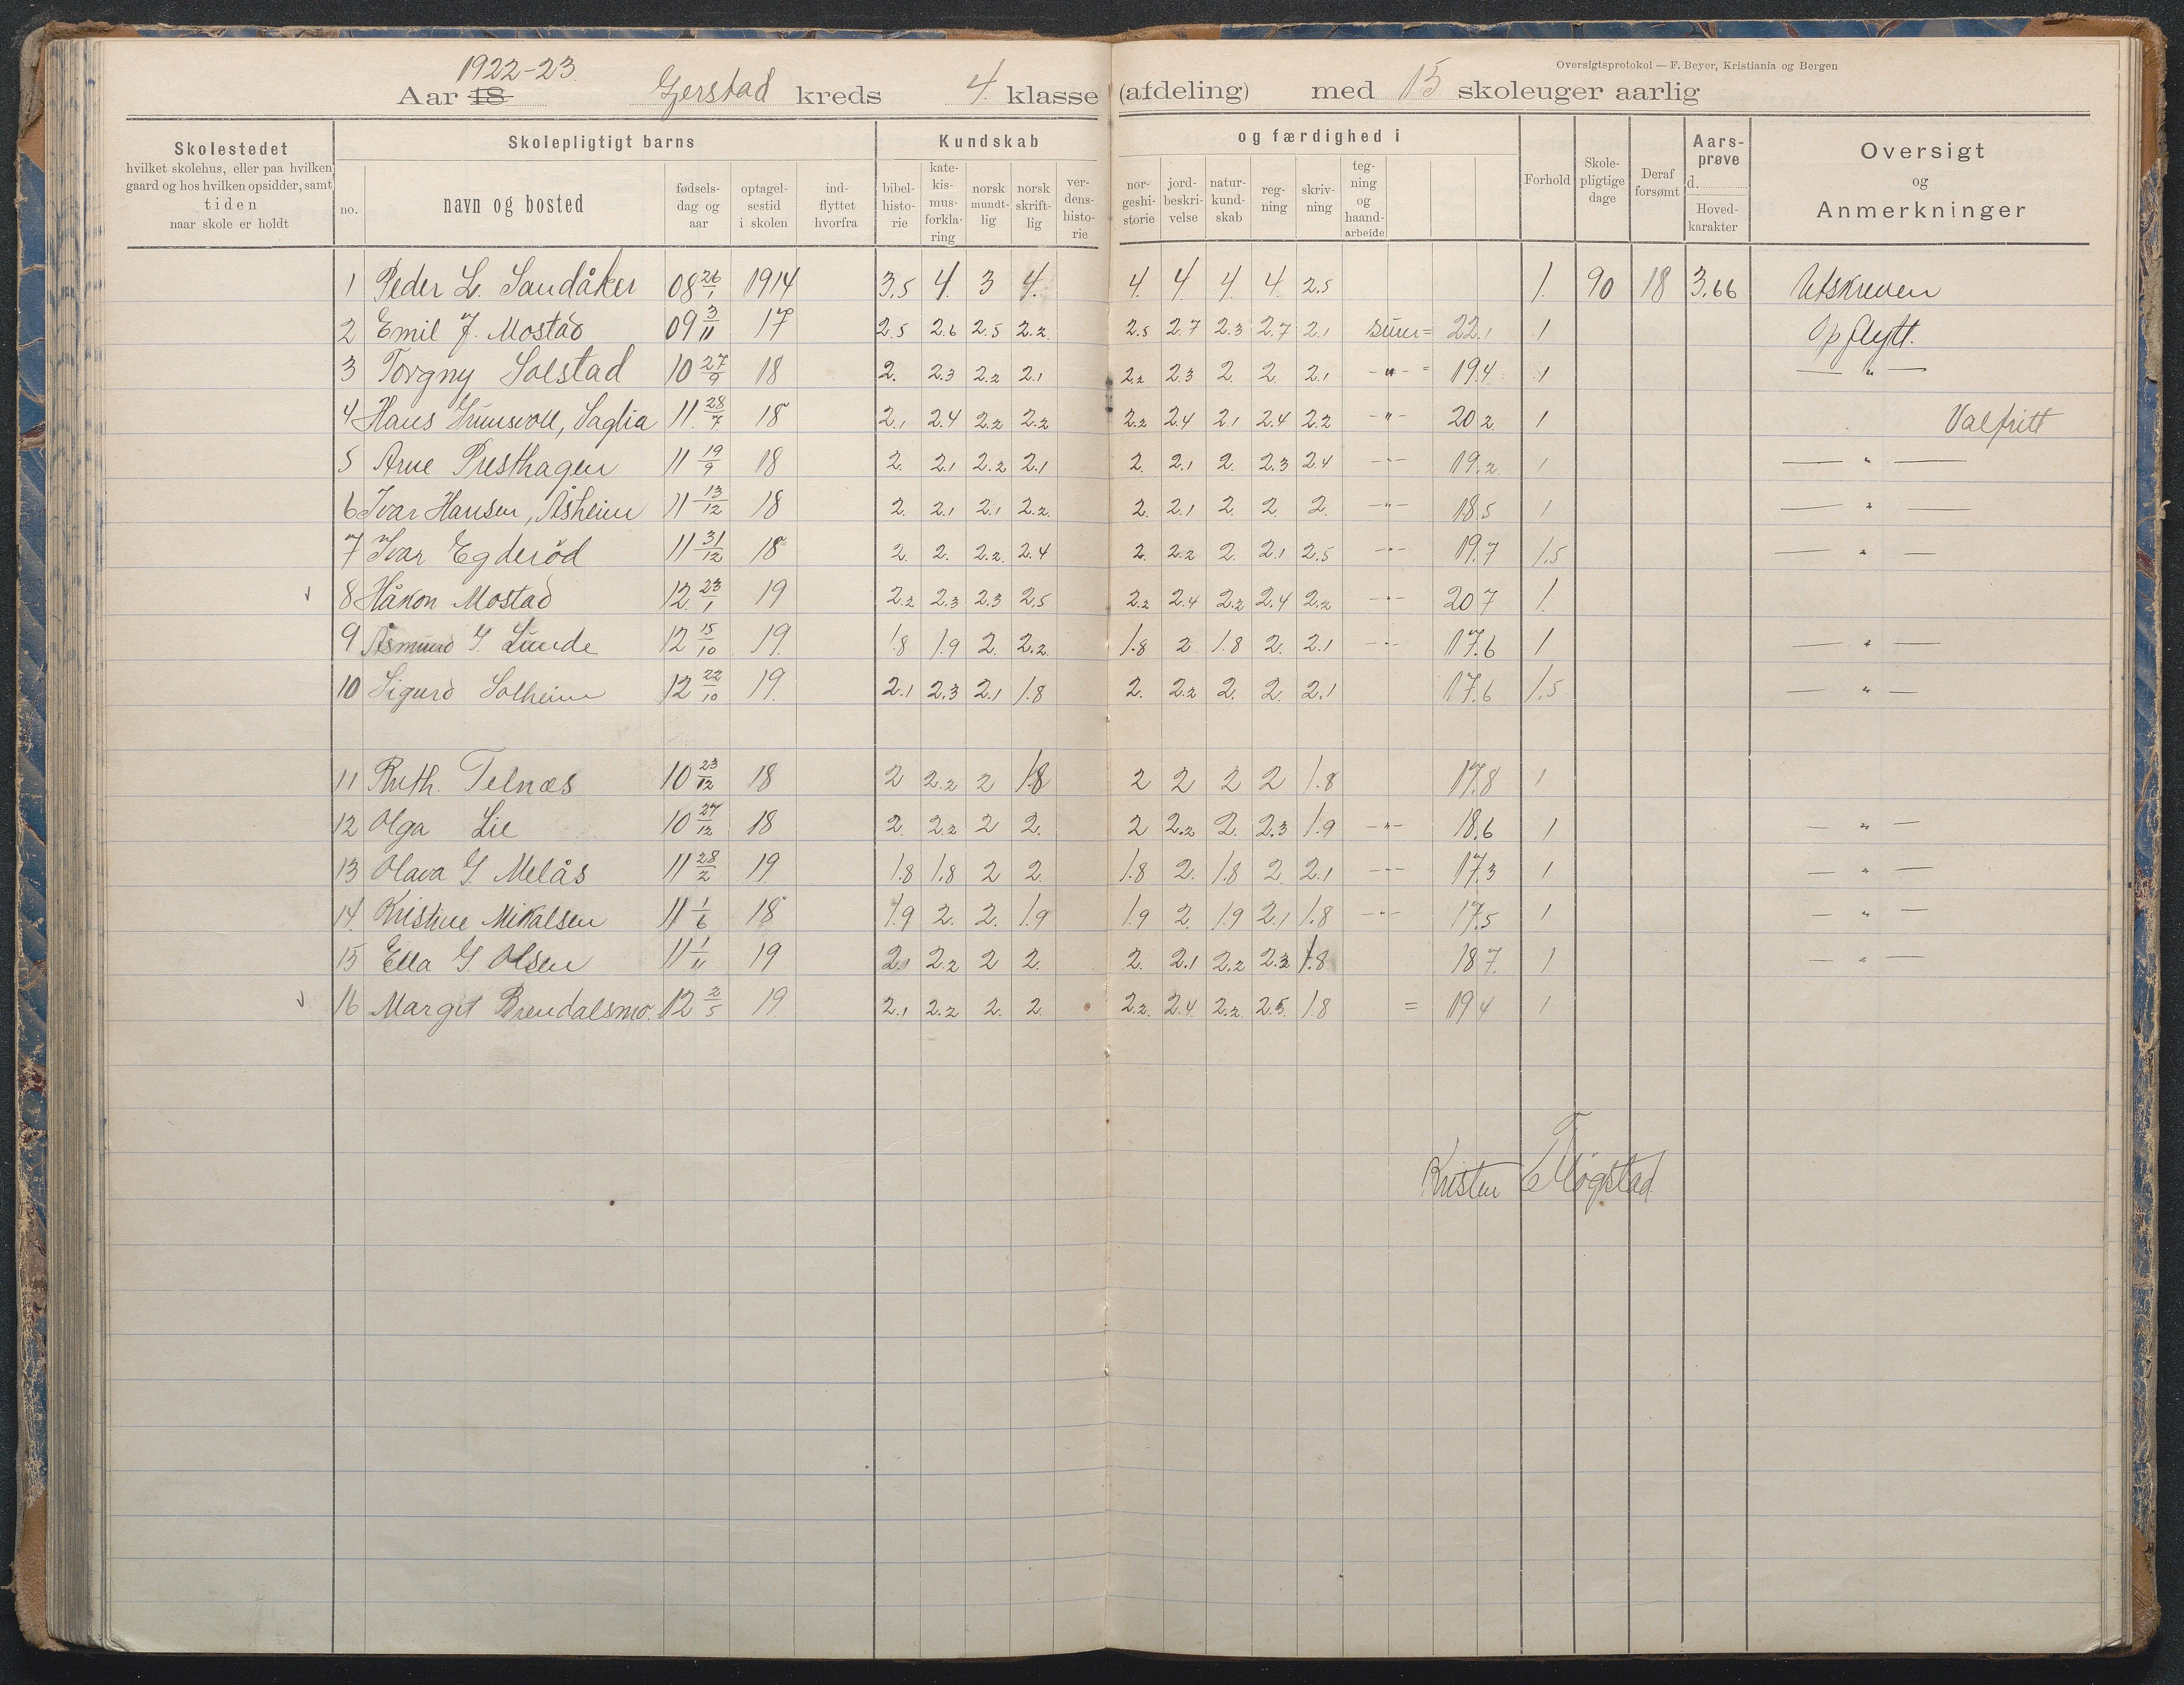 Oversigtsprotokol — F. Beyer, Kristiania og Bergen
1922-23.
Aar 18 Gerstad kreds 4. klasse (afdeling) med 15 skoleuger aarlig
Skolestedet
hvilket skolehus, eller paa hvilken
gaard og hos hvilken opsidder, samt
tiden
naar skole er holdt
Skolepligtigt barns
no.
navn og bosted
fødsels-
dag og
aar
optagel-
sestid
i skolen
ind-
flyttet
hvorfra
Kundskab
bibel-
histo-
rie
kate-
kis-
mus-
forkla-
ring
norsk
mundt-
lig
norsk
skrift-
lig
ver-
dens-
histo-
rie
og færdighed i
nor-
geshi-
storie
jord-
beskri-
velse
natur-
kund-
skab
reg-
ning
skriv-
ning
teg-
ning
og
haand-
arbeide
Forhold
Skole-
pligtige
dage
Deraf
forsømt
Aars-
prøve
d.
Hoved-
karakter
Oversigt
og
Anmerkninger
1 Peder L. Sandåker 08 26/1 1914 3.5 4. 3 4. 4. 4. 4. 4. 2.5 1. 90 18 3.66 Utskreven
2 Emil J. Mostad 09 3/11 17 2.5 2.6 2.5 2.2 2.5 2.7 2.3 2.7 2.1 sum= 22.1 1 Opflytt.
3 Torgny Solstad 10 27/9 18 2. 2.3 2.2 2.1 2.2 2.3 2 2. 2.1 -"- = 19.4 1 — " —
4 Hans Grunsvoll, Saglia 11 28/7 18 2.1 2.4 2.2 2.2 2.2 2.4 2.1 2.4 2.2 -"- 20.2 1 Valfritt
5 Arne Presthagen 11 19/9 18 2. 2.1 2.2 2.1 2. 2.1 2. 2.3 2.4 -"- 19.2 1 — " —
6 Ivar Hansen, Åsheim 11 13/12 18 2. 2.1 2.1 2.2 2. 2.1 2 2 2. -"- 18.5 1 — " —
7 Ivar Egderöd 11 31/12 18 2. 2. 2.2 2.4 2. 2.2 2. 2.1 2.5 -"- 19.7 1.5 — " —
8 Håkon Mostad 12 23/1 19 2.2 2.3 2.3 2.5 2.2 2.4 2.2 2.4 2.2 -"- 20.7 1.
9 Åsmund G. Lunde 12 15/10 19. 1.8 1.9 2. 2.2 1.8 2 1.8 2. 2.1 -"- 17.6 1 — " —
10 Sigurd Solheim 12 22/10 19. 2.1 2.3 2.1 1.8 2. 2.2 2. 2. 2.1 17.6 1.5 — " —
11 Ruth Telnæs 10 23/12 18 2 2.2 2 1.8 2 2 2 2 1.8 17.8 1
12 Olga Lie 10 27/12 18 2. 2.2 2 2. 2 2.2 2. 2.3 1.9 -"- 18.6 1 — " —
13 Olava G. Melås 11 28/2 19. 1.8 1.8 2 2. 1.8 2. 1.8 2. 2.1 -"- 17.3 1 — " —
14. Kristine Mikalsen 11 1/6 18 1.9 2. 2. 1.9 1.9 2. 1.9 2.1 1.8 -"- 17.5 1 — " —
15 Ella G. Olsen 11 1/11 19 2.1 2.2 2 2. 2. 2.1 2.2 2.3 1.8 18.7. 1 — " —
16 Margit Brendalsmo. 12 2/5 19. 2.1 2.2 2. 2. 2.2 2.4 2.2 2.5 1.8 = 19.4 1
Kristen